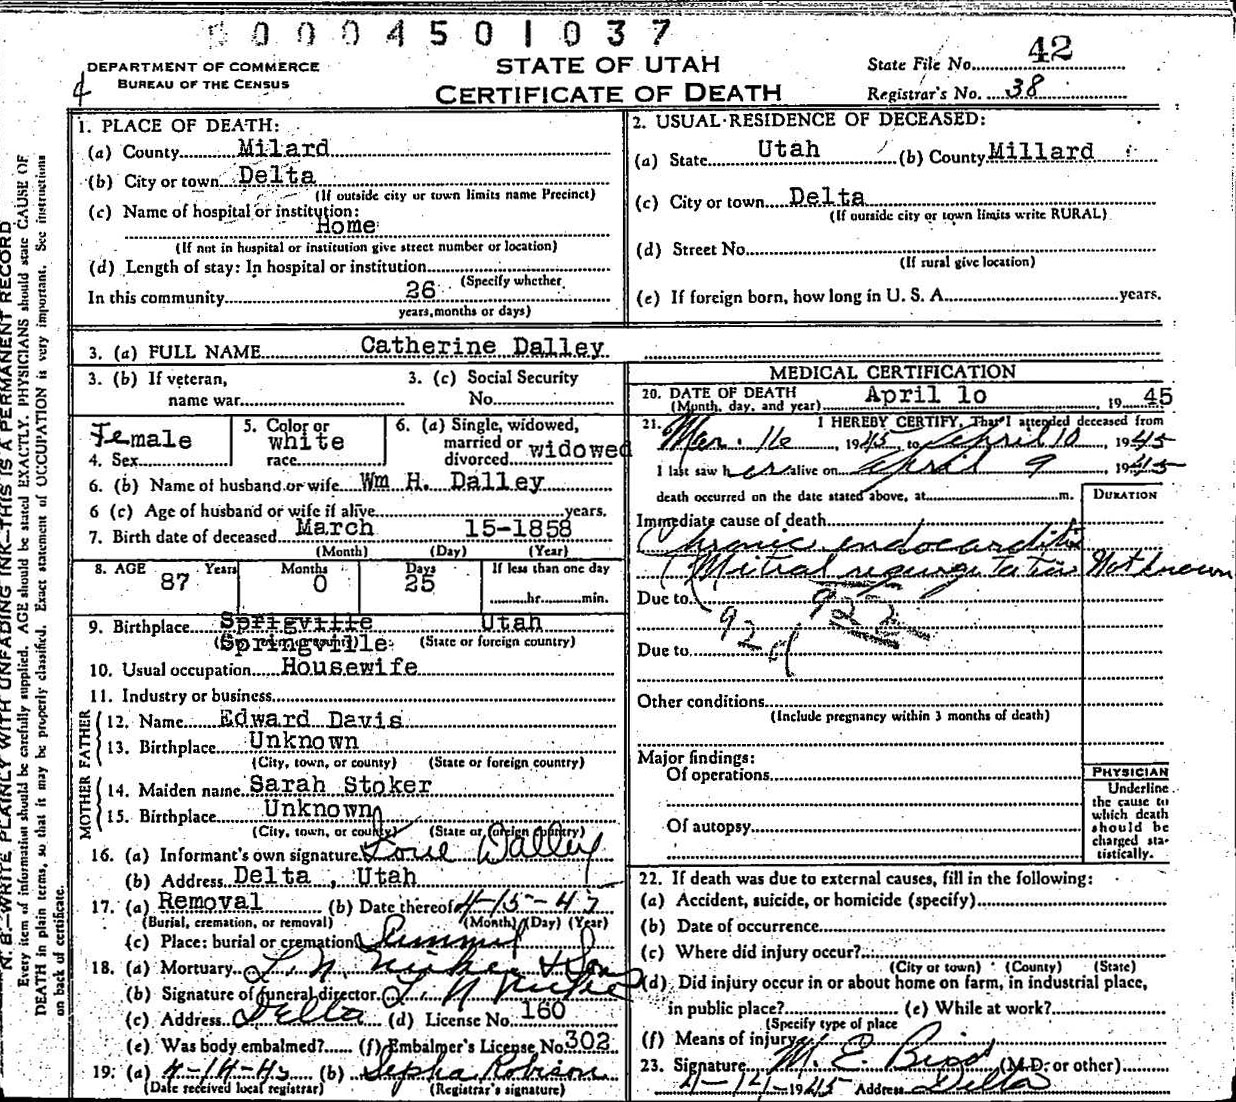 0004501037
DEPARTMENT OF COMMERCE
BUREAU OF THE CENSUS
4
STATE OF UTAH
CERTIFICATE OF DEATH
State File No. 42
Registrar's No. 38
N. B.—WRITE PLAINLY WITH UNFADING INK—THIS IS A PERMANENT RECORD
Every item of information should be carefully supplied. AGE should be stated EXACTLY. PHYSICIANS should state CAUSE OF
DEATH in plain terms, so that it may be properly classified. Exact statement of OCCUPATION is very important. See instructions
on back of certificate.
1. PLACE OF DEATH:
(a) County Milard
(b) City or town Delta
(If outside city or town limits name Precinct)
(c) Name of hospital or institution:
Home
(If not in hospital or institution give street number or location)
(d) Length of stay: In hospital or institution
(Specify whether
In this community 26
years, months or days)
2. USUAL RESIDENCE OF DECEASED:
(a) State Utah (b) County Millard
(c) City or town Delta
(If outside city or town limits write RURAL)
(d) Street No.
(If rural give location)
(e) If foreign born, how long in U. S. A. years.
3. (a) FULL NAME Catherine Dalley
3. (b) If veteran,
name war
3. (c) Social Security
No.
4. Sex Female
5. Color or
race white
6. (a) Single, widowed,
married or
divorced widowed
6. (b) Name of husband or wife Wm H. Dalley
6 (c) Age of husband or wife if alive years.
7. Birth date of deceased March 15-1858
(Month) (Day) (Year)
8. AGE Years Months Days If less than one day
87 0 25 hr. min.
9. Birthplace Sprigville Utah
Springville (State or foreign country)
10. Usual occupation Housewife
11. Industry or business
FATHER
12. Name Edward Davis
13. Birthplace Unknown
(City, town, or county) (State or foreign country)
MOTHER
14. Maiden name Sarah Stoker
15. Birthplace Unknown
(City, town, or county) (State or foreign country)
16. (a) Informant's own signature Dalley
(b) Address Delta, Utah
17. (a) Removal (b) Date thereof 4-15-45
(Burial, cremation, or removal) (Month) (Day) (Year)
(c) Place: burial or cremation Summit
18. (a) Mortuary & Son
(b) Signature of funeral director
(c) Address Delta (d) License No. 160
(e) Was body embalmed? (f) Embalmer's License No. 302
19. (a) 4-14-45 (b) Robison
(Date received local registrar) (Registrar's signature)
MEDICAL CERTIFICATION
20. DATE OF DEATH
(Month, day, and year) April 1o 1945
21. I HEREBY CERTIFY, That I attended deceased from
Mar. 16, 1945, to April 10, 1945
I last saw her alive on April 9, 1945
death occurred on the date stated above, at m.
DURATION
Immediate cause of death
Chronic endocarditis
(Mitral regurgitation Not known
Due to 922
92d
Due to
Other conditions
(Include pregnancy within 3 months of death)
Major findings:
Of operations
Of autopsy
PHYSICIAN
Underline
the cause to
which death
should be
charged sta-
tistically.
22. If death was due to external causes, fill in the following:
(a) Accident, suicide, or homicide (specify)
(b) Date of occurrence
(c) Where did injury occur?
(City or town) (County) (State)
(d) Did injury occur in or about home on farm, in industrial place,
in public place? (e) While at work?
(Specify type of place
(f) Means of injury
23. Signature M. E. Bird (M.D. or other)
4-14-1945 Address Delta